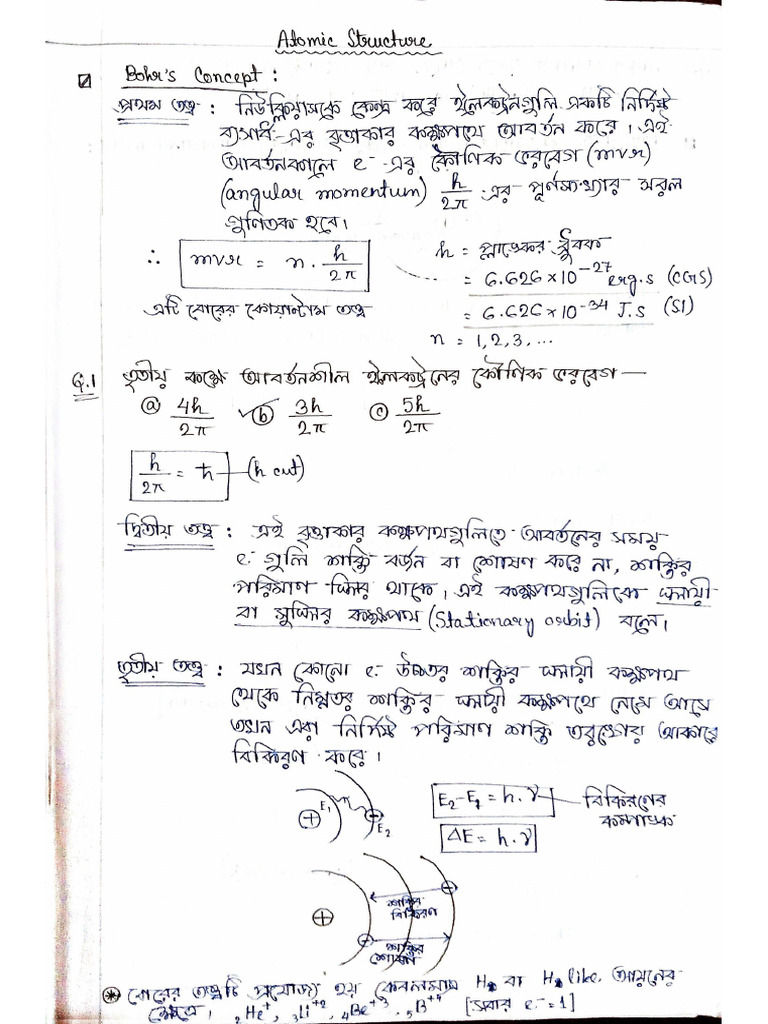 Atomic Structure
Bohr's Concept :
প্রথম তত্ত্ব : নিউক্লিয়াসকে কেন্দ্র করে ইলেকট্রনগুলি একটি নির্দিষ্ট
ব্যাসার্ধ-এর বৃত্তাকার কক্ষপথে আবর্তন করে। এই
আবর্তনকালে e⁻ -এর কৌণিক ভরবেগ (mvr)
(angular momentum) h/2π -এর পূর্ণসংখ্যার সরল
গুণিতক হবে।
∴ mvr = n . h/2π
h = প্লাঙ্কের ধ্রুবক
= 6.626×10⁻²⁷ erg.s (CGS)
= 6.626×10⁻³⁴ J.S (SI)
n = 1,2,3,...
এটি বোরের কোয়ান্টাম তত্ত্ব
Q.1 তৃতীয় কক্ষে আবর্তনশীল ইলেকট্রনের কৌণিক ভরবেগ —
ⓐ 4h/2π ✓ⓑ 3h/2π ⓒ 5h/2π
h/2π = ħ (h cut)
দ্বিতীয় তত্ত্ব : এই বৃত্তাকার কক্ষপথগুলিতে আবর্তনের সময়
e⁻ গুলি শক্তি বর্জন বা শোষণ করে না, শক্তির
পরিমাণ স্থির থাকে। এই কক্ষপথগুলিকে স্থায়ী
বা সুস্থির কক্ষপথ (Stationary orbit) বলে।
তৃতীয় তত্ত্ব : যখন কোনো e⁻ উচ্চতর শক্তির স্থায়ী কক্ষপথ
থেকে নিম্নতর শক্তির স্থায়ী কক্ষপথে নেমে আসে
তখন এরা নির্দিষ্ট পরিমাণ শক্তি তরঙ্গের আকারে
বিকিরণ করে।
E₁ E₂
E₂-E₁ = h.γ বিকিরণের কম্পাঙ্ক
ΔE = h.γ
শক্তির
বিকিরণ
শক্তির
শোষণ
⊛ বোরের তত্ত্বটি প্রযোজ্য হয় কেবলমাত্র H বা H like আয়নের
ক্ষেত্রে। ₂He⁺, ₃Li⁺², ₄Be⁺³, ₅B⁺⁴ [সবার e⁻=1]